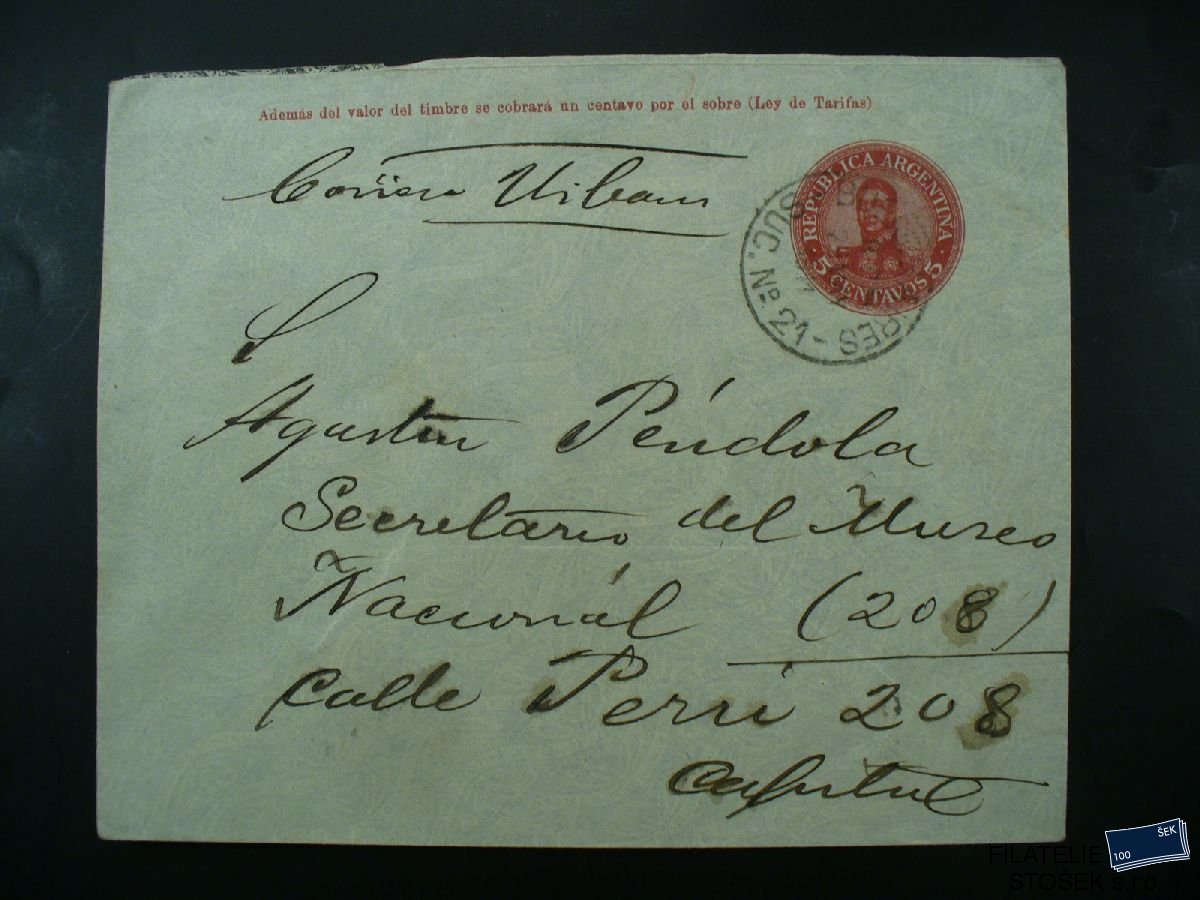 Además del valor del timbre se cobrará un centavo por el sobre (Ley de Tarifas)
REPÚBLICA ARGENTINA
5 CENTAVOS 5
SUC. Nº 21 - RES
S
Agustin Péndola
Secretario del Museo
Nacionál (208)
Calle Perri 208
Capital
100 ŠEK
FILATELIE
STOŠEK s.r.o.